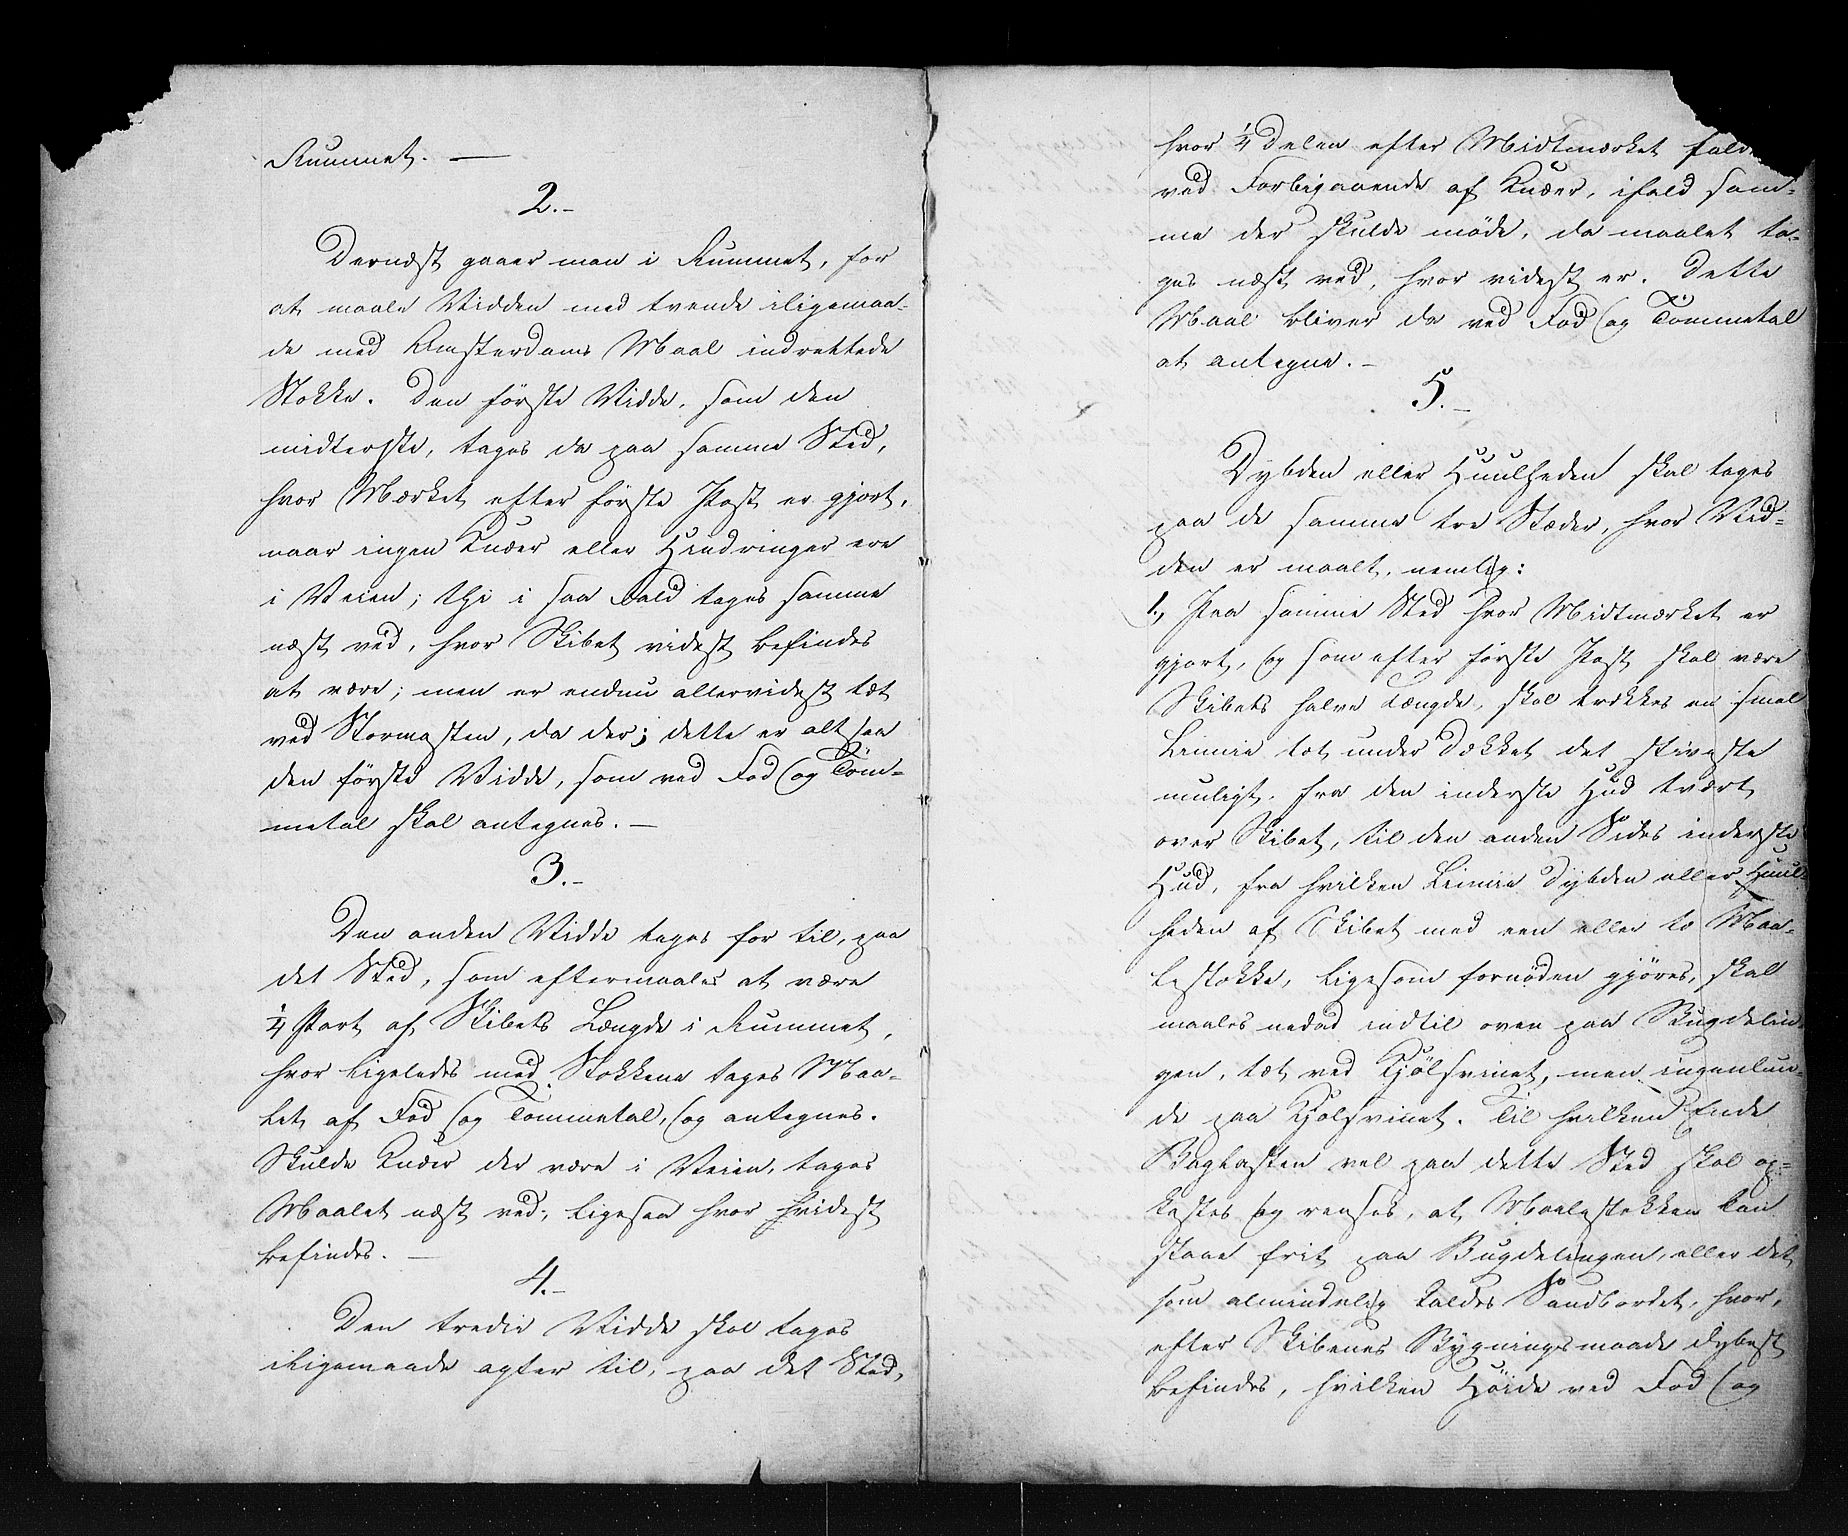 Rummet. —
2.–
Dernæst gaaer man i Rummet, for
at maale Vidden med tvende iligemaa-
de med Amsterdams Maal indrettede
Stokke. Den første Vidde, som den
midterste, tages da paa samme Sted,
hvor Mærket efter første Post er gjort,
naar ingen Knæer eller Hindringer ere
i Veien; thi i saa Fald tages samme
næst ved, hvor Skibet videst befindes
at være; men er endnu allervidest tæt
ved Stormasten, da der; dette er altsaa
den første Vidde, som ved Fod og Tom-
metal skal antegnes. —
3.–
Den anden Vidde tages for til, paa
det Sted, som eftermaales at være
1/4 Part af Skibets Længde i Rummet,
hvor ligeledes med Stokkene tages Maa-
let af Fod og Tommetal, og antegnes.
Skulde Knæer der være i Veien, tages
Maalet næst ved, ligesaa hvor hvidest
befindes. —
4.–
Den tredie Vidde skal tages
iligemaade agter til, paa det Sted,
hvor 1/4 Delen efter Midtmærket fald
ved Forbigaaende af Knæer, ifald sam-
me der skulde møde, da maalet ta-
ges næst ved, hvor videst er. Dette
Maal bliver da ved Fod og Tommetal
at antegne. –
5.–
Dybden eller Huulheden skal tages
paa de samme tre Stæder, hvor Vid-
den er maalt, nemlig:
1, Paa samme Sted hvor Midtmærket er
gjort, og som efter første Post skal være
Skibets halve Længde, skal trækkes en smal
Linnie tæt under Dækket det stiveste
muligt, fra den inderste Hud tvært
over Skibet, til den anden Sides inderste
Hud, fra hvilken Linnie Dybden eller Huul-
heden af Skibet med een eller to Maa-
lestokke, ligesom fornøden gjøres, skal
maales nedad indtil oven paa Bugdelin
gen, tæt ved Kjølsvinet, men ingenlun-
de paa Kjølsvinet. Til hvilken Ende
Baglasten vel paa dette Sted skal op-
kastes og renses, at Maalestokken kan
staae frit paa Bugdelingen, eller det
som almindelig kaldes Sandbordet, hvor,
efter Skibenes Bygningsmaade dybest
befindes, hvilken Höide ved Fod og